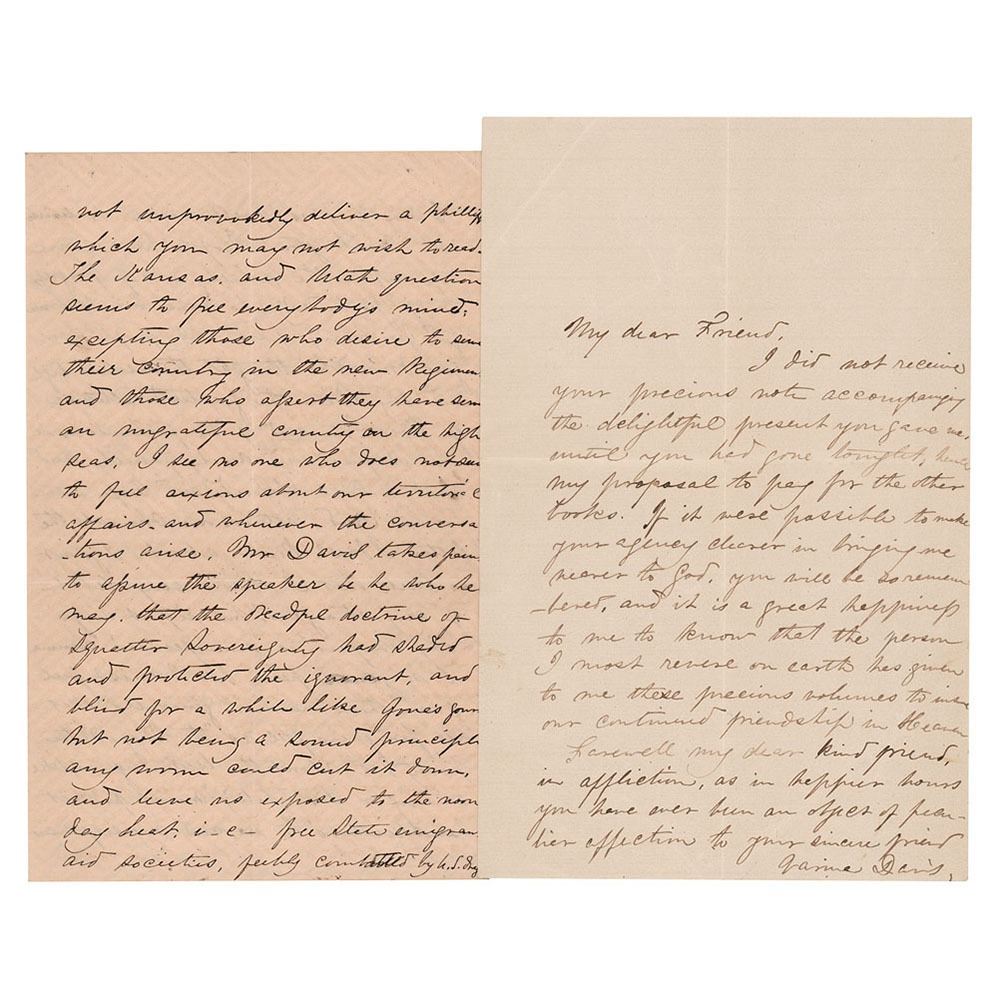 not unprovokedly deliver a phillip
which you may not wish to read.
The Kansas, and Utah question
seems to fill everybody's mind,
excepting those who desire to
their country in the new Regimen
and those who assert they have
an ungrateful country on the high
seas, I see no one who does not
to feel anxious about our territorial
affairs. and whenever the conversa
-tions arise, Mr Davis takes pain
to assure the speaker be he who he
may. that the dreadful doctrine of
Squatter Sovereignty had shaded
and protected the ignorant, and
blind for a while like Jonas gour
but not being a sound principle
any worm could cut it down,
and leave us exposed to the noon
day heat, i-e- free State emigran
aid societies, feebly combatted by U.S.
My dear Friend,
I did not receive
your precious note accompanying
the delightful present you gave me,
until you had gone tonight, hence
my proposal to pay for the other
books. If it were possible to make
your agency clearer in bringing me
nearer to God, you will be so remem
-bered, and it is a great happiness
to me to know that the person
I most revere on earth has given
to me these precious volumes to
our continued friendship in Heaven
Farewell my dear kind friend,
in affliction, as in happier hours
you have ever been an object of pecu-
liar affection to your sincere friend
Varina Davis,